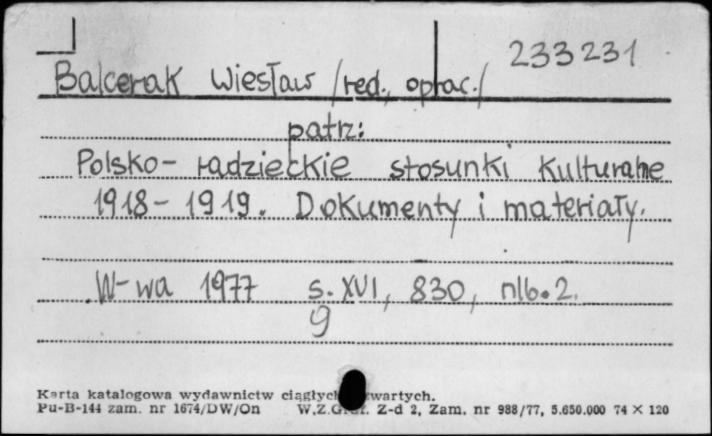 233231
Balcerak Wiesław /red., oprac./
patrz:
Polsko-radzieckie stosunki kulturalne
1918-1919. Dokumenty i materiały.
W-wa 1977 s. XVI, 830, nlb. 2.
9
Karta katalogowa wydawnictw ciągłych
Pu-B-144 zam. nr 1674/DW/On W.Z.Graf. Z-d 2, Zam. nr 988/77, 5.650.000 74 X 120